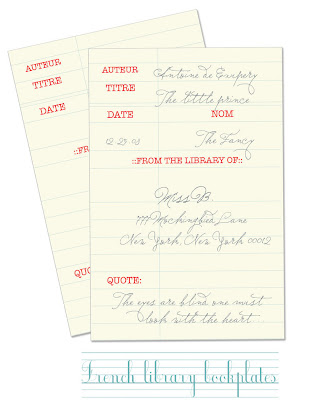 AUTEUR
TITRE
DATE
::FR
QUOT
AUTEUR Antoine de Exupery
TITRE The little prince
DATE NOM
12-25-08 The Fancy
::FROM THE LIBRARY OF::
Miss B.
777 Mockingbird Lane
New York, New York 00012
QUOTE:
The eyes are blind one must
look with the heart...
French library bookplates